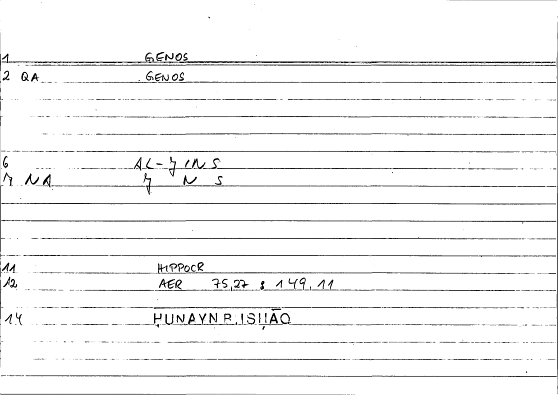 1 GENOS
2 QA GENOS
6 AL-JINS
7 NA J N S
11 HIPPOCR
12 AER 75,27 : 149,11
14 ḤUNAYN B. ISḤĀQ